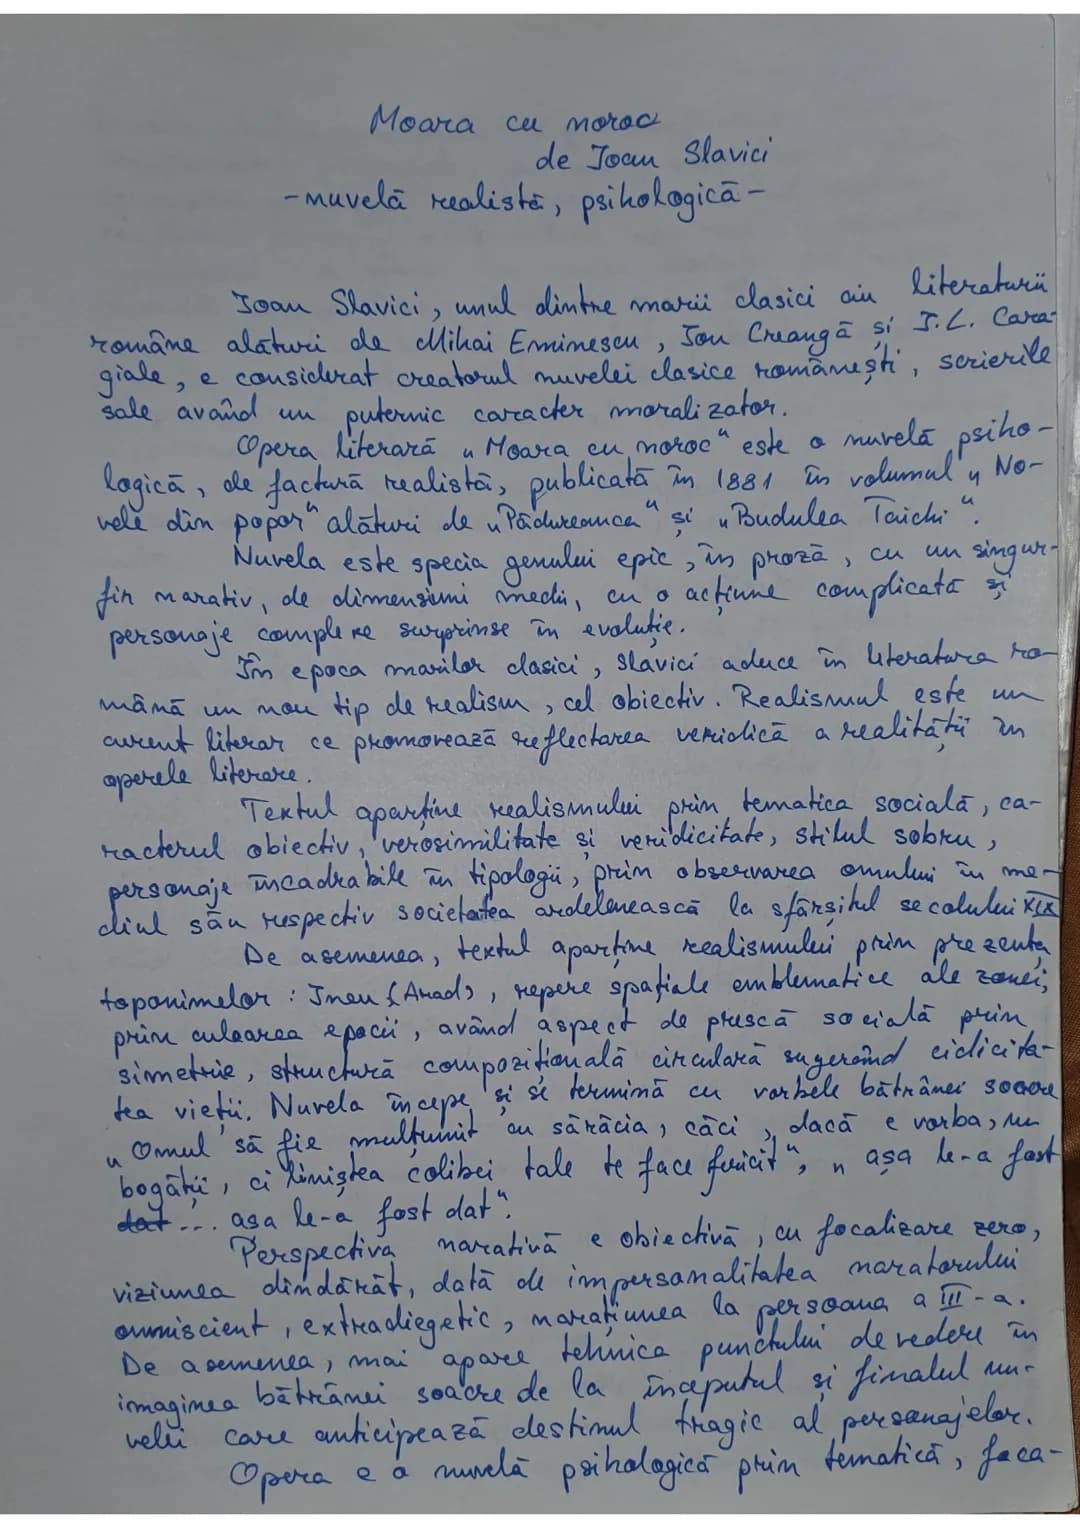 Moara cu noroc
de Ioan Slavici
-nuvelă realistă, psihologică-
Ioan Slavici, unul dintre marii clasici ai literaturii
române alături de Mihai Eminescu, Ion Creangă și I.L. Cara-
giale, e considerat creatorul nuvelei clasice românești, scrierile
sale având un puternic caracter moralizator.
Opera literară „Moara cu noroc" este o nuvelă psiho-
logică, de factură realistă, publicată în 1881 în volumul „No-
vele din popor" alături de „Pădureanca" și „Budulea Taichi".
Nuvela este specia genului epic, în proză, cu un singur
fir narativ, de dimensiuni medii, cu o acțiune complicată și
personaje complexe surprinse în evoluție.
În epoca marilor clasici, Slavici aduce în literatura ro-
mână un nou tip de realism, cel obiectiv. Realismul este un
curent literar ce promovează reflectarea veridică a realității în
operele literare.
Textul aparține realismului prin tematica socială, ca-
racterul obiectiv, verosimilitate și veridicitate, stilul sobru,
personaje încadrabile în tipologii, prin observarea omului în me-
diul său respectiv societatea ardelenească la sfârșitul secolului XIX
De asemenea, textul aparține realismului prin prezența
toponimelor: Ineu (Arad), repere spațiale emblematice ale zonei;
prin culoarea epocii, având aspect de frescă socială prin
simetrie, structură compozițională circulară sugerând ciclicita-
tea vieții. Nuvela începe și se termină cu vorbele bătrânei soacre
„Omul să fie mulțumit cu sărăcia, căci, dacă e vorba, nu
bogății, ci liniștea colibei tale te face fericit", „așa le-a fost
dat... așa le-a fost dat".
Perspectiva narativă e obiectivă, cu focalizare zero,
viziunea dindărăt, dată de impersonalitatea naratorului
omniscient, extradiegetic, narațiunea la persoana a III-a.
De asemenea, mai apare tehnica punctului de vedere în
imaginea bătrânei soacre de la începutul și finalul nu-
velei care anticipează destinul tragic al personajelor.
Opera e o nuvelă psihologică prin tematică, foca-